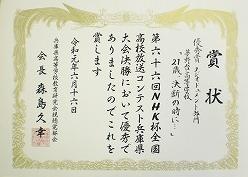 賞状
優秀賞 テレビドキュメント部門
芽野台高等学校
"21歳、決断の時に…"
第六十六回NHK杯全国
高校放送コンテスト兵庫県
大会決勝において優秀で
ありましたのでこれを
賞します
令和元年六月十六日
兵庫県高等学校教育研究会視聴覚部会
会長 森島久幸